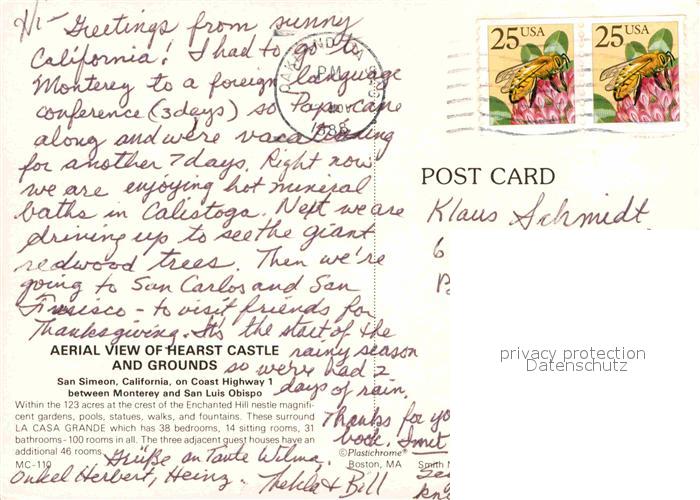 Hi - Greetings from sunny
California! I had to go to
Monterey to a foreign language
conference (3 days) so Papa came
along and we're vacationing
for another 7 days. Right now
we are enjoying hot mineral
baths in Calistoga. Next we are
driving up to see the giant
redwood trees. Then we're
going to San Carlos and San
- to visit friends for
Thanksgiving. It's the start of the
rainy season
so we've had 2
days of rain.
Thanks for yo
book. I met
Grüße an Tante Wilma,
Onkel Herbert, Heinz. Thekla & Bill
AERIAL VIEW OF HEARST CASTLE
AND GROUNDS
San Simeon, California, on Coast Highway 1
between Monterey and San Luis Obispo
Within the 123 acres at the crest of the Enchanted Hill nestle magnifi-
cent gardens, pools, statues, walks, and fountains. These surround
LA CASA GRANDE which has 38 bedrooms, 14 sitting rooms, 31
bathrooms - 100 rooms in all. The three adjacent guest houses have an
additional 46 rooms.
MC-110
©Plastichrome®
Boston, MA
Smith N
25 USA
25 USA
OAKLAND, CA
PM
NOV
1988
POST CARD
Klaus Schmidt
6
privacy protection
Datenschutz